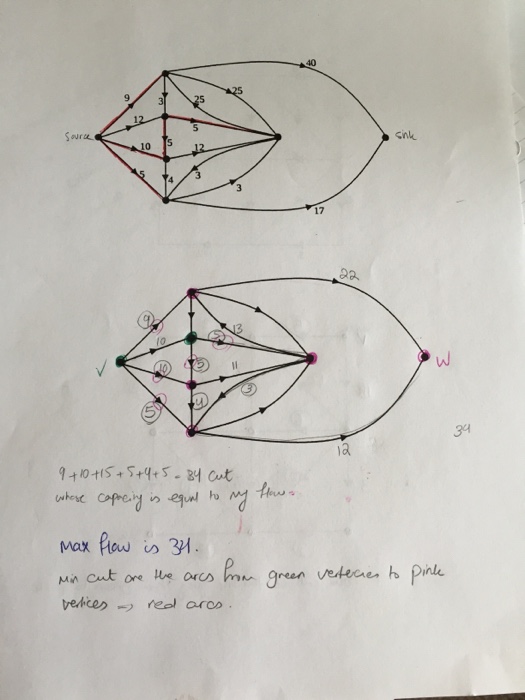 40
9
3
25
25
12
5
Source
sink
10
5
12
5
4
3
3
17
22
9
13
10
5
V
10
5
11
W
5
4
3
34
12
9+10+15+5+4+5 = 34 cut
whose capacity is equal to my flow.
Max flow is 34.
Min cut are the arcs from green vertecies to pink
vertices => red arcs.